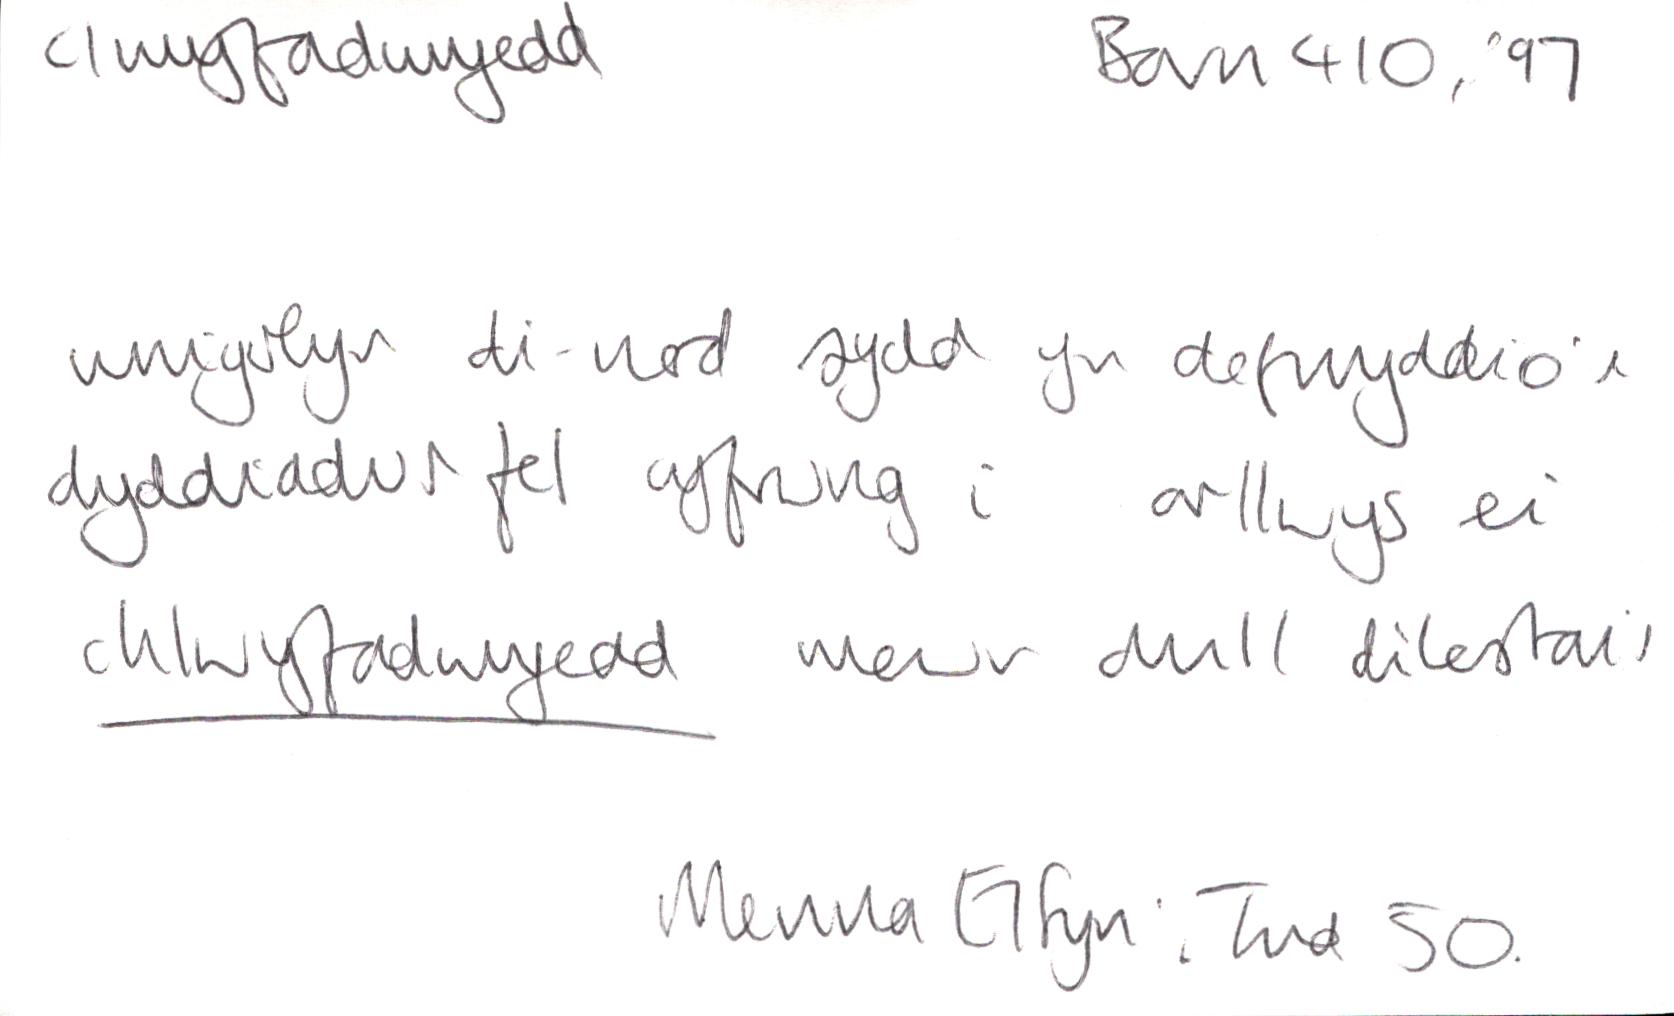 clwyfadwyedd Barn 410, '97
unigolyn di-nod sydd yn defnyddio'r
dyddiadur fel cyfrwng i arllwys ei
chlwyfadwyedd mewn dull dilestair
Menna Elfyn: Tud 50.